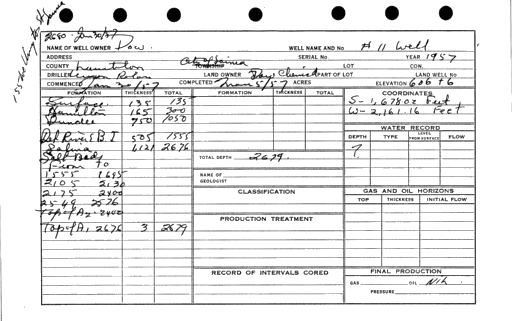 2680. Jan 30/57
NAME OF WELL OWNER Dow. WELL NAME AND No # 11 Well
ADDRESS SERIAL No. YEAR 1957
COUNTY Lambton City of Sarnia TOWNSHIP LOT CON.
DRILLER LAND OWNER Dow Chemical PART OF LOT LAND WELL No
COMMENCED Jan 30/57 COMPLETED Mar 5/57 ACRES ELEVATION 606 + 6
FORMATION THICKNESS TOTAL FORMATION THICKNESS TOTAL COORDINATES
Surface 135 135
Hamilton 165 300
Dundee 750 1050
S- 1,678.02 Feet
W- 2,161.16 Feet
WATER RECORD
DEPTH TYPE LEVEL FROM SURFACE FLOW
Det River & B.I 505 1555
Salina 1121 2676
Salt Beds
From To
1555 1645
2105 2130
2175 2400
2549 2576
Top of A2 - 2400
Top of A1 2676 3 2679
TOTAL DEPTH 2679.
NAME OF GEOLOGIST
CLASSIFICATION
GAS AND OIL HORIZONS
TOP THICKNESS INITIAL FLOW
PRODUCTION TREATMENT
RECORD OF INTERVALS CORED
FINAL PRODUCTION
GAS OIL Nil.
PRESSURE